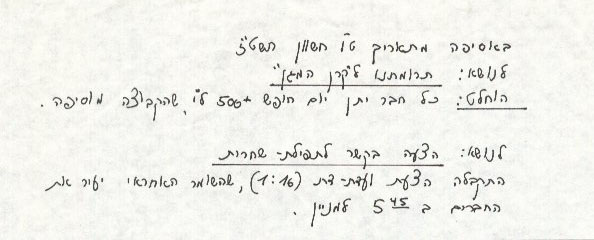 באסיפה מתאריך ט"ו חשוון תשט"ז
לנושא: תרומתנו ל"קרן המגן"
הוחלט: כל חבר יתן יום חופש +500 ל"י, שהקבוצה מוסיפה.
לנושא: הצעה בקשר לתפילת-שחרית
התקבלה הצעת ועדת-דת (1:16), שהשומר האחראי יעיר את
החברים ב 5⁴⁵ למניין.